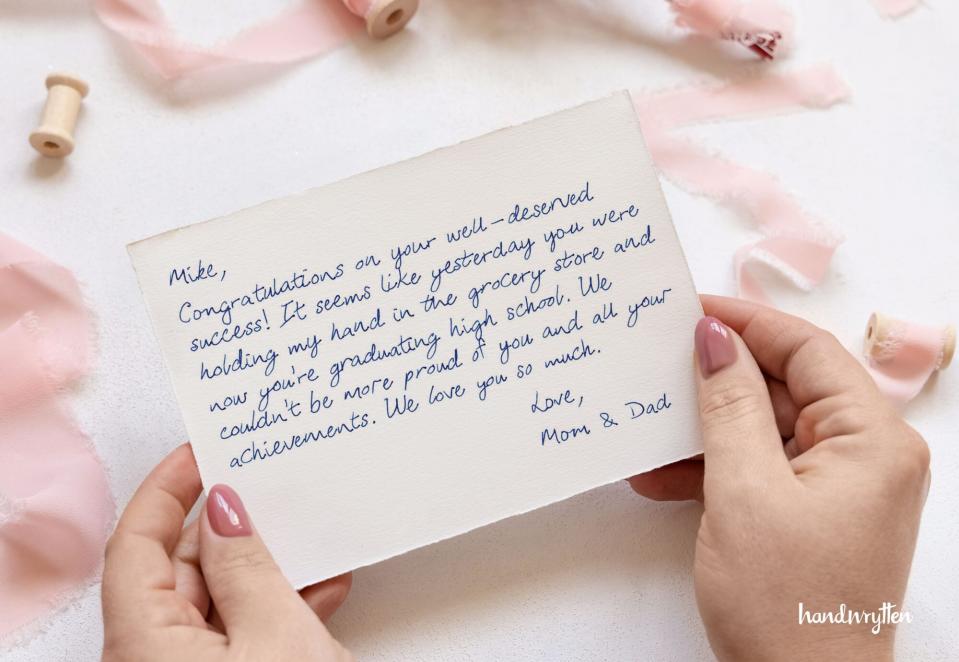 Mike,
Congratulations on your well-deserved
success! It seems like yesterday you were
holding my hand in the grocery store and
now you're graduating high school. We
couldn't be more proud of you and all your
achievements. We love you so much.
Love,
Mom & Dad
handwrytten